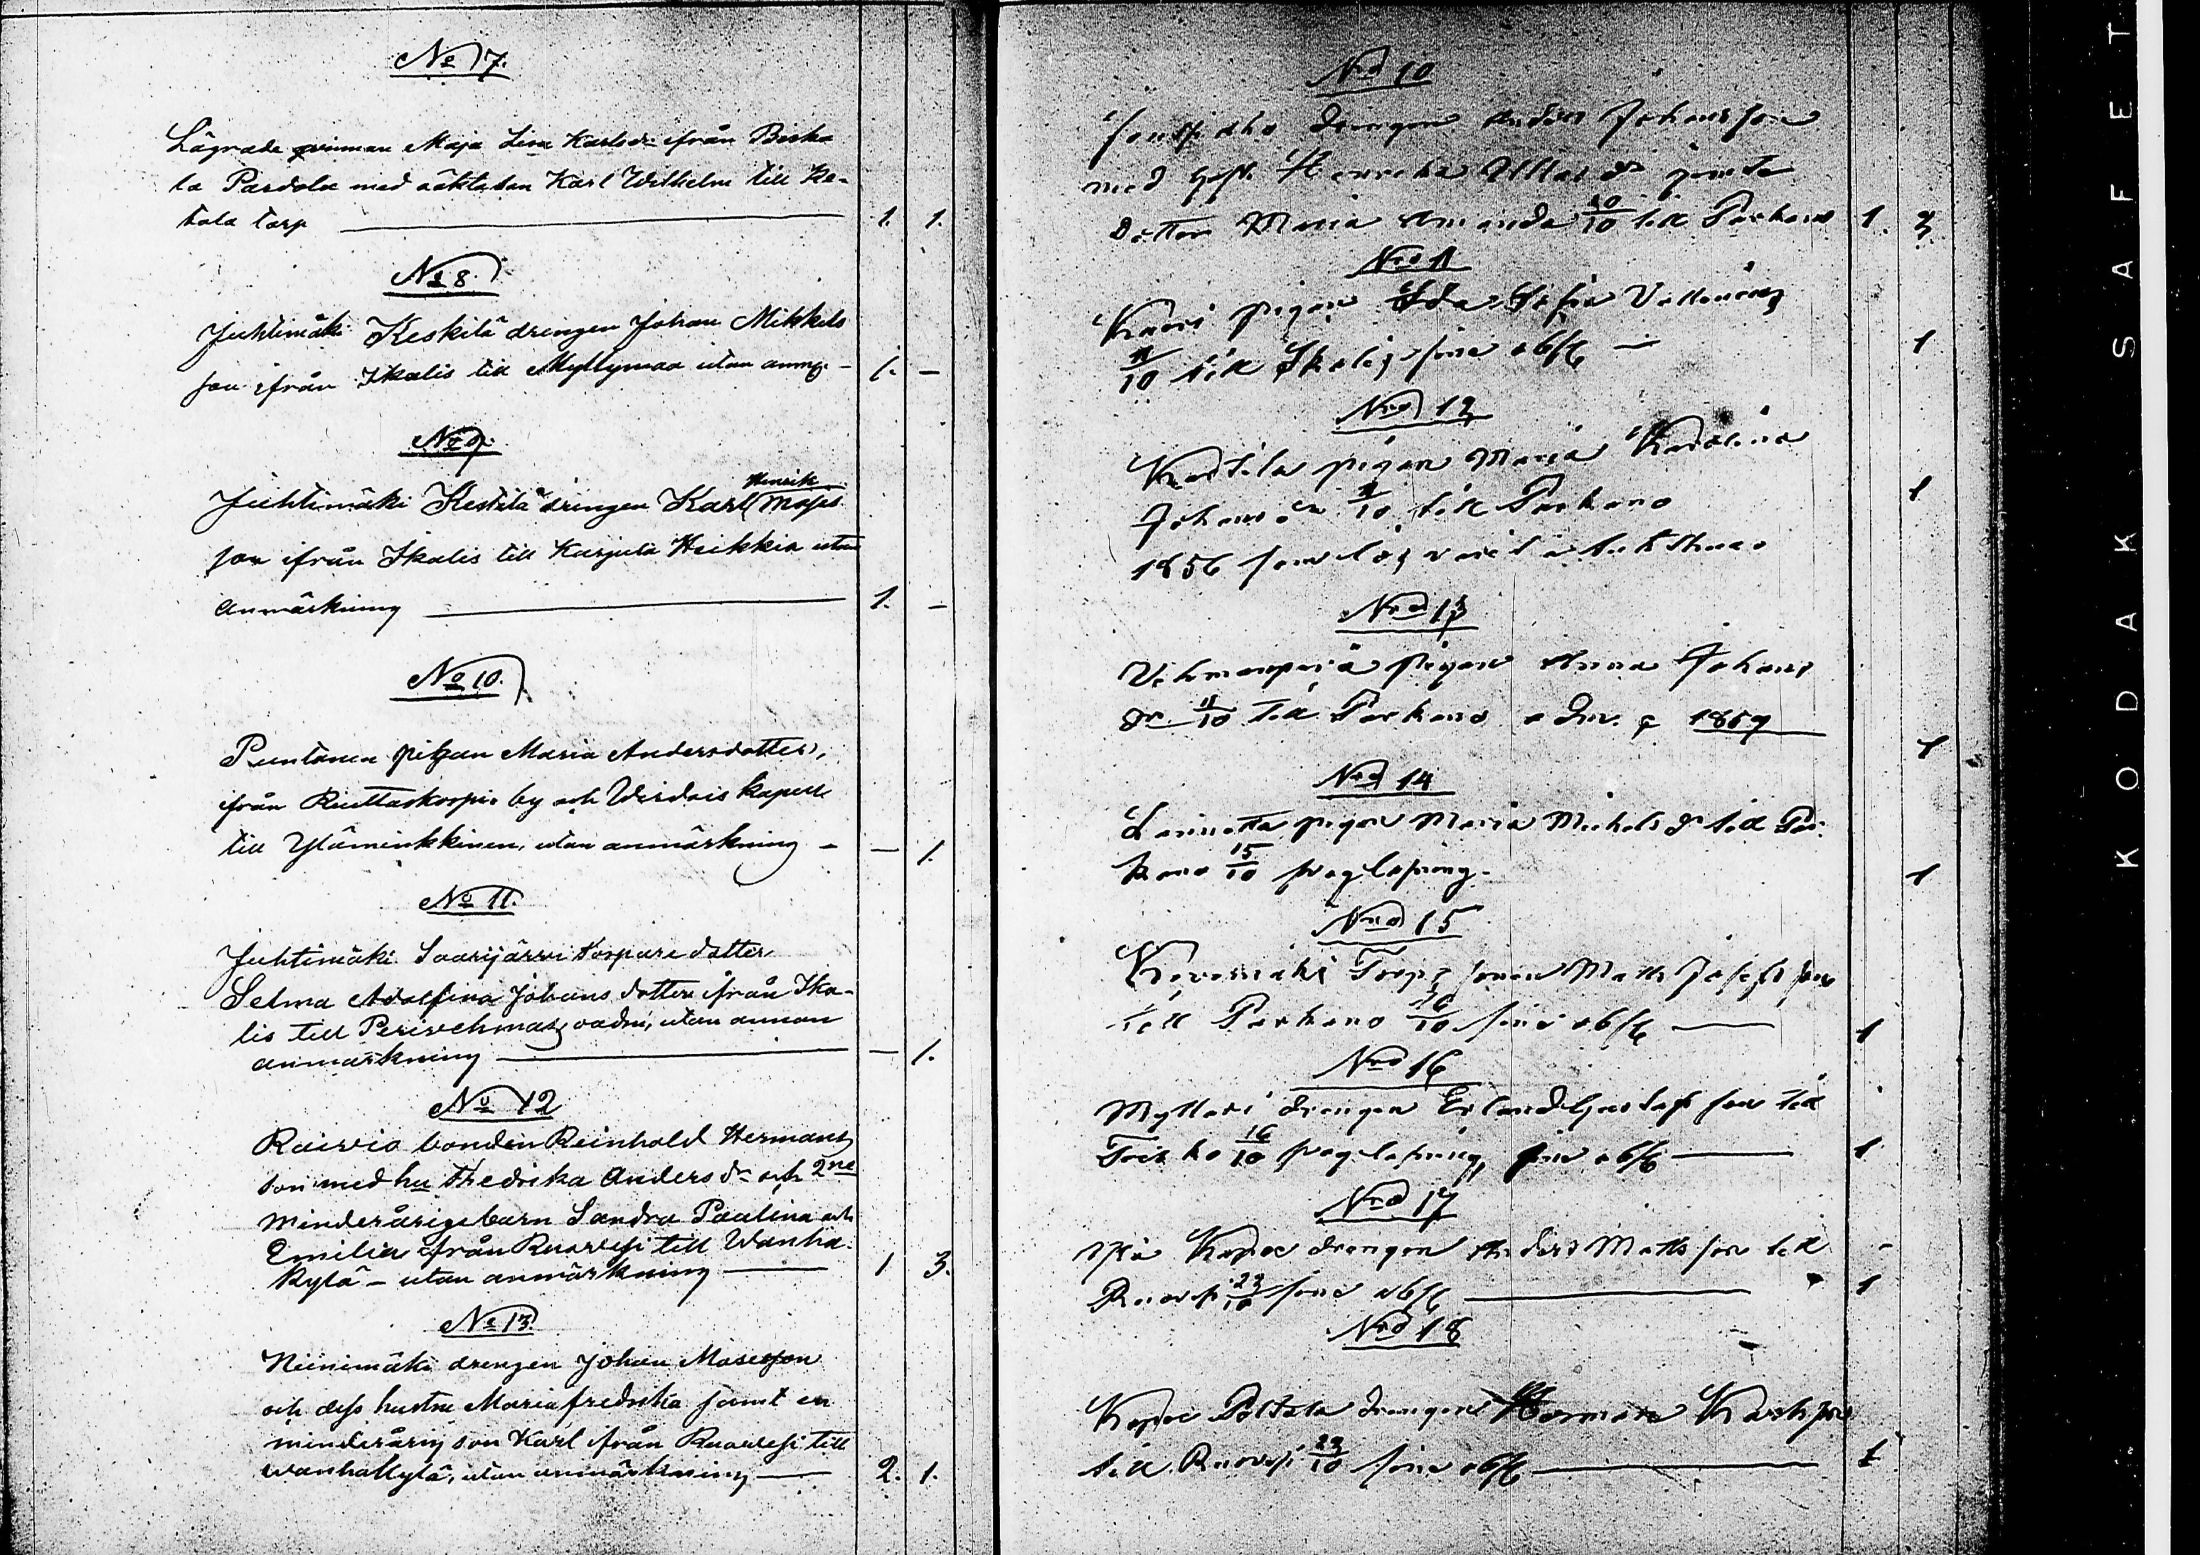 No 7.
Lägrade qvinnan Maja Lisa Karlsdr ifrån Birka
la Pardola med oäkta son Karl Wilhelm till Ka-
tola torp 1. 1.
No 8.
Juhtimäki Keskitä drengen Johan Mikkels
son ifrån Ikalis till Myllymaa utan anmg. 1. -
No 9.
Henrik
Juhtimäki Keskitä drengen Karl Moses
son ifrån Ikalis till Karjula Heikkia utan
anmärkning 1. -
No 10.
Puntanen pigan Maria Andersdotter,
ifrån Ruettaskorpi by och Wirdois kapell
till Yläminkkinen, utan anmärkning - - 1.
No 11.
Juhtimäki Saarijärvi torpare dotter
Selma Adolfina Johans dotter ifrån Ika-
lis till Perivehmas, oadm, utan annan
anmärkning - 1.
No 12
Raivio bonden Reinhold Hermans
son med hu Fredrika Anders dr och 2ne
minderåriga barn Sandra Paulina och
Emilia från Ruovesi till Wanha-
kylä - utan anmärkning 1 3.
No 13.
Niinimäki drengen Johan Mosesson
och dess hustru Maria fredrika samt en
minderårig son Karl ifrån Ruovesi till
Wanhakylä, utan anmärkning 2. 1.
Nro 10
drengen Anders Johansson
med hust. Henrika Ullas dr jemte
Dotter Maria Amanda 10/10 till Parkano 1. 3
Nro 11
Kaari pigan Ida Sofia Vallenius
11/10 till Ikalis 1
Nro 12
Karttila pigan Maria Karolina
Johans dr 11/10 till Parkano 1
1856
Nro 13
Vehmanperä pigan Anna Johans
dr 11/10 till Parkano 1859
1
Nro 14
Lainetta pigan Maria Michels dr till Par-
kano 15/10 1
Nro 15
Koveromäki Torp. sonen Matts Josefsson
till Parkano 16/10 1
Nro 16
Myllari drengen Erland Gustafsson till
16/10 1
Nro 17
Ylä Kopoe drengen Anders Mattsson till
Ruovesi 23/10 1
Nro 18
Kopoe Poltala drengen Herman Karlsson
till Ruovesi 23/10 1
KODAK SAFET